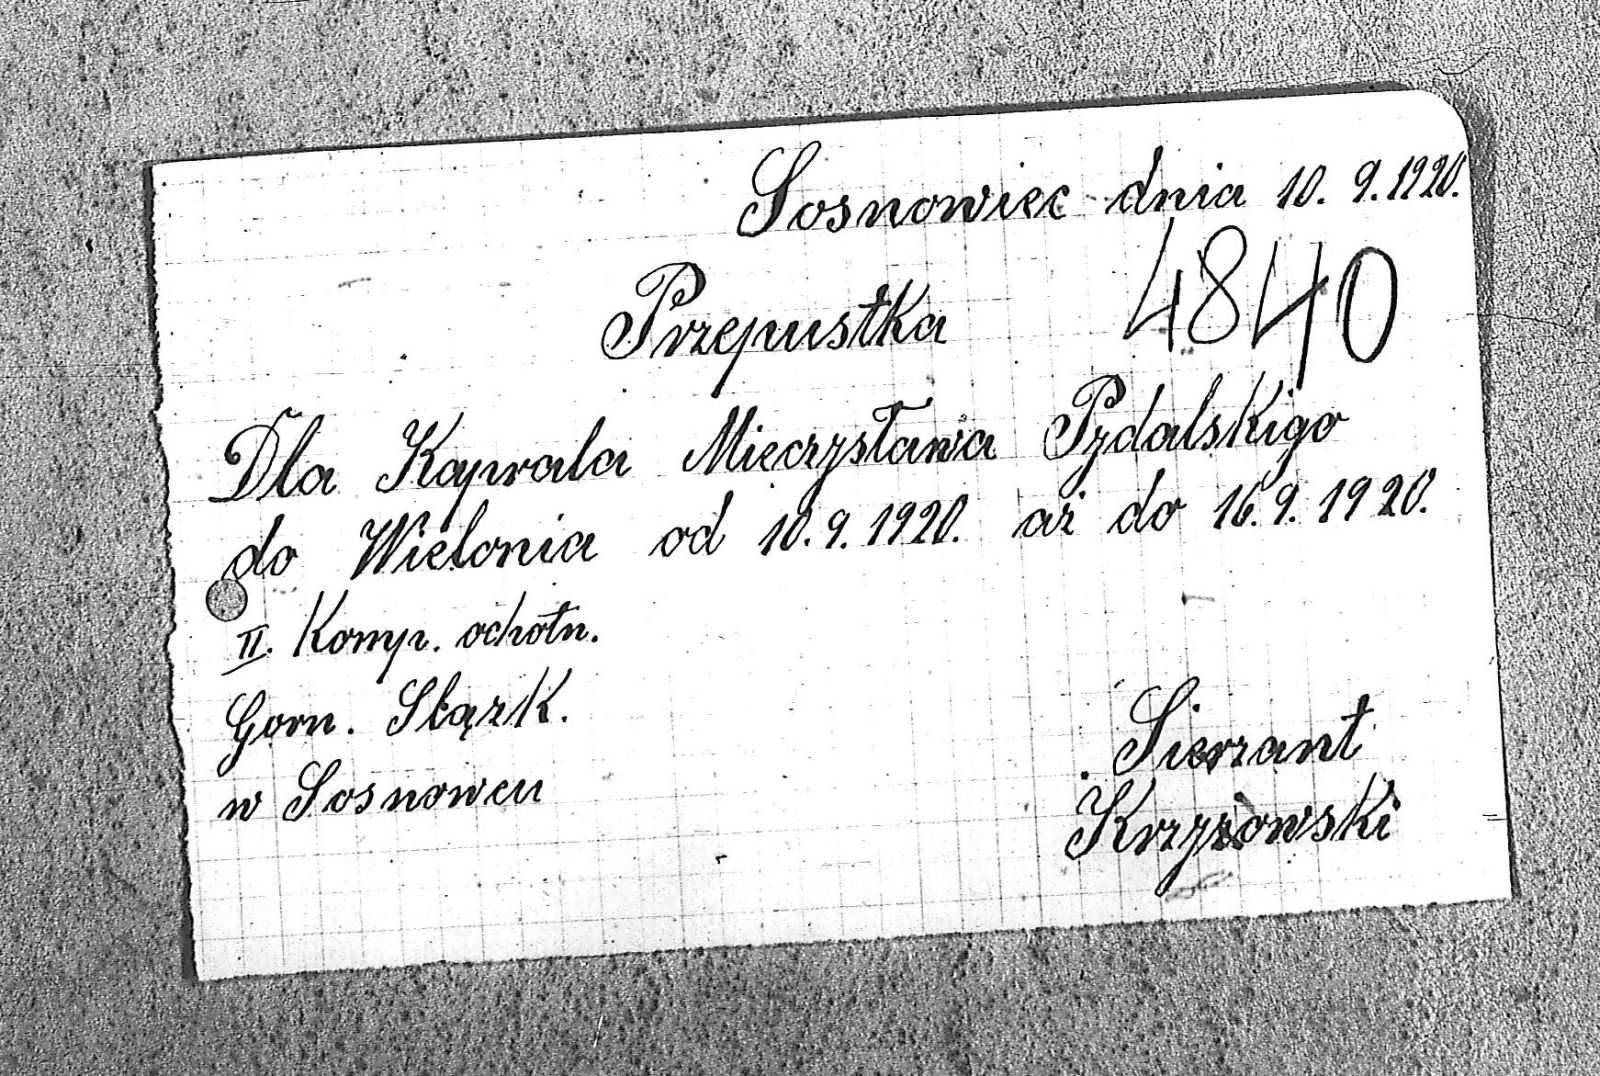 Sosnowiec dnia 10. 9. 1920.
Przepustka 4840
Dla Kaprala Mieczysława Pydalskigo
do Wielonia od 10. 9. 1920. aż do 16. 9. 1920.
II. Komp. ochotn.
Gorn. Slązk.
w Sosnowcu
Sierzant
Krzyżowski